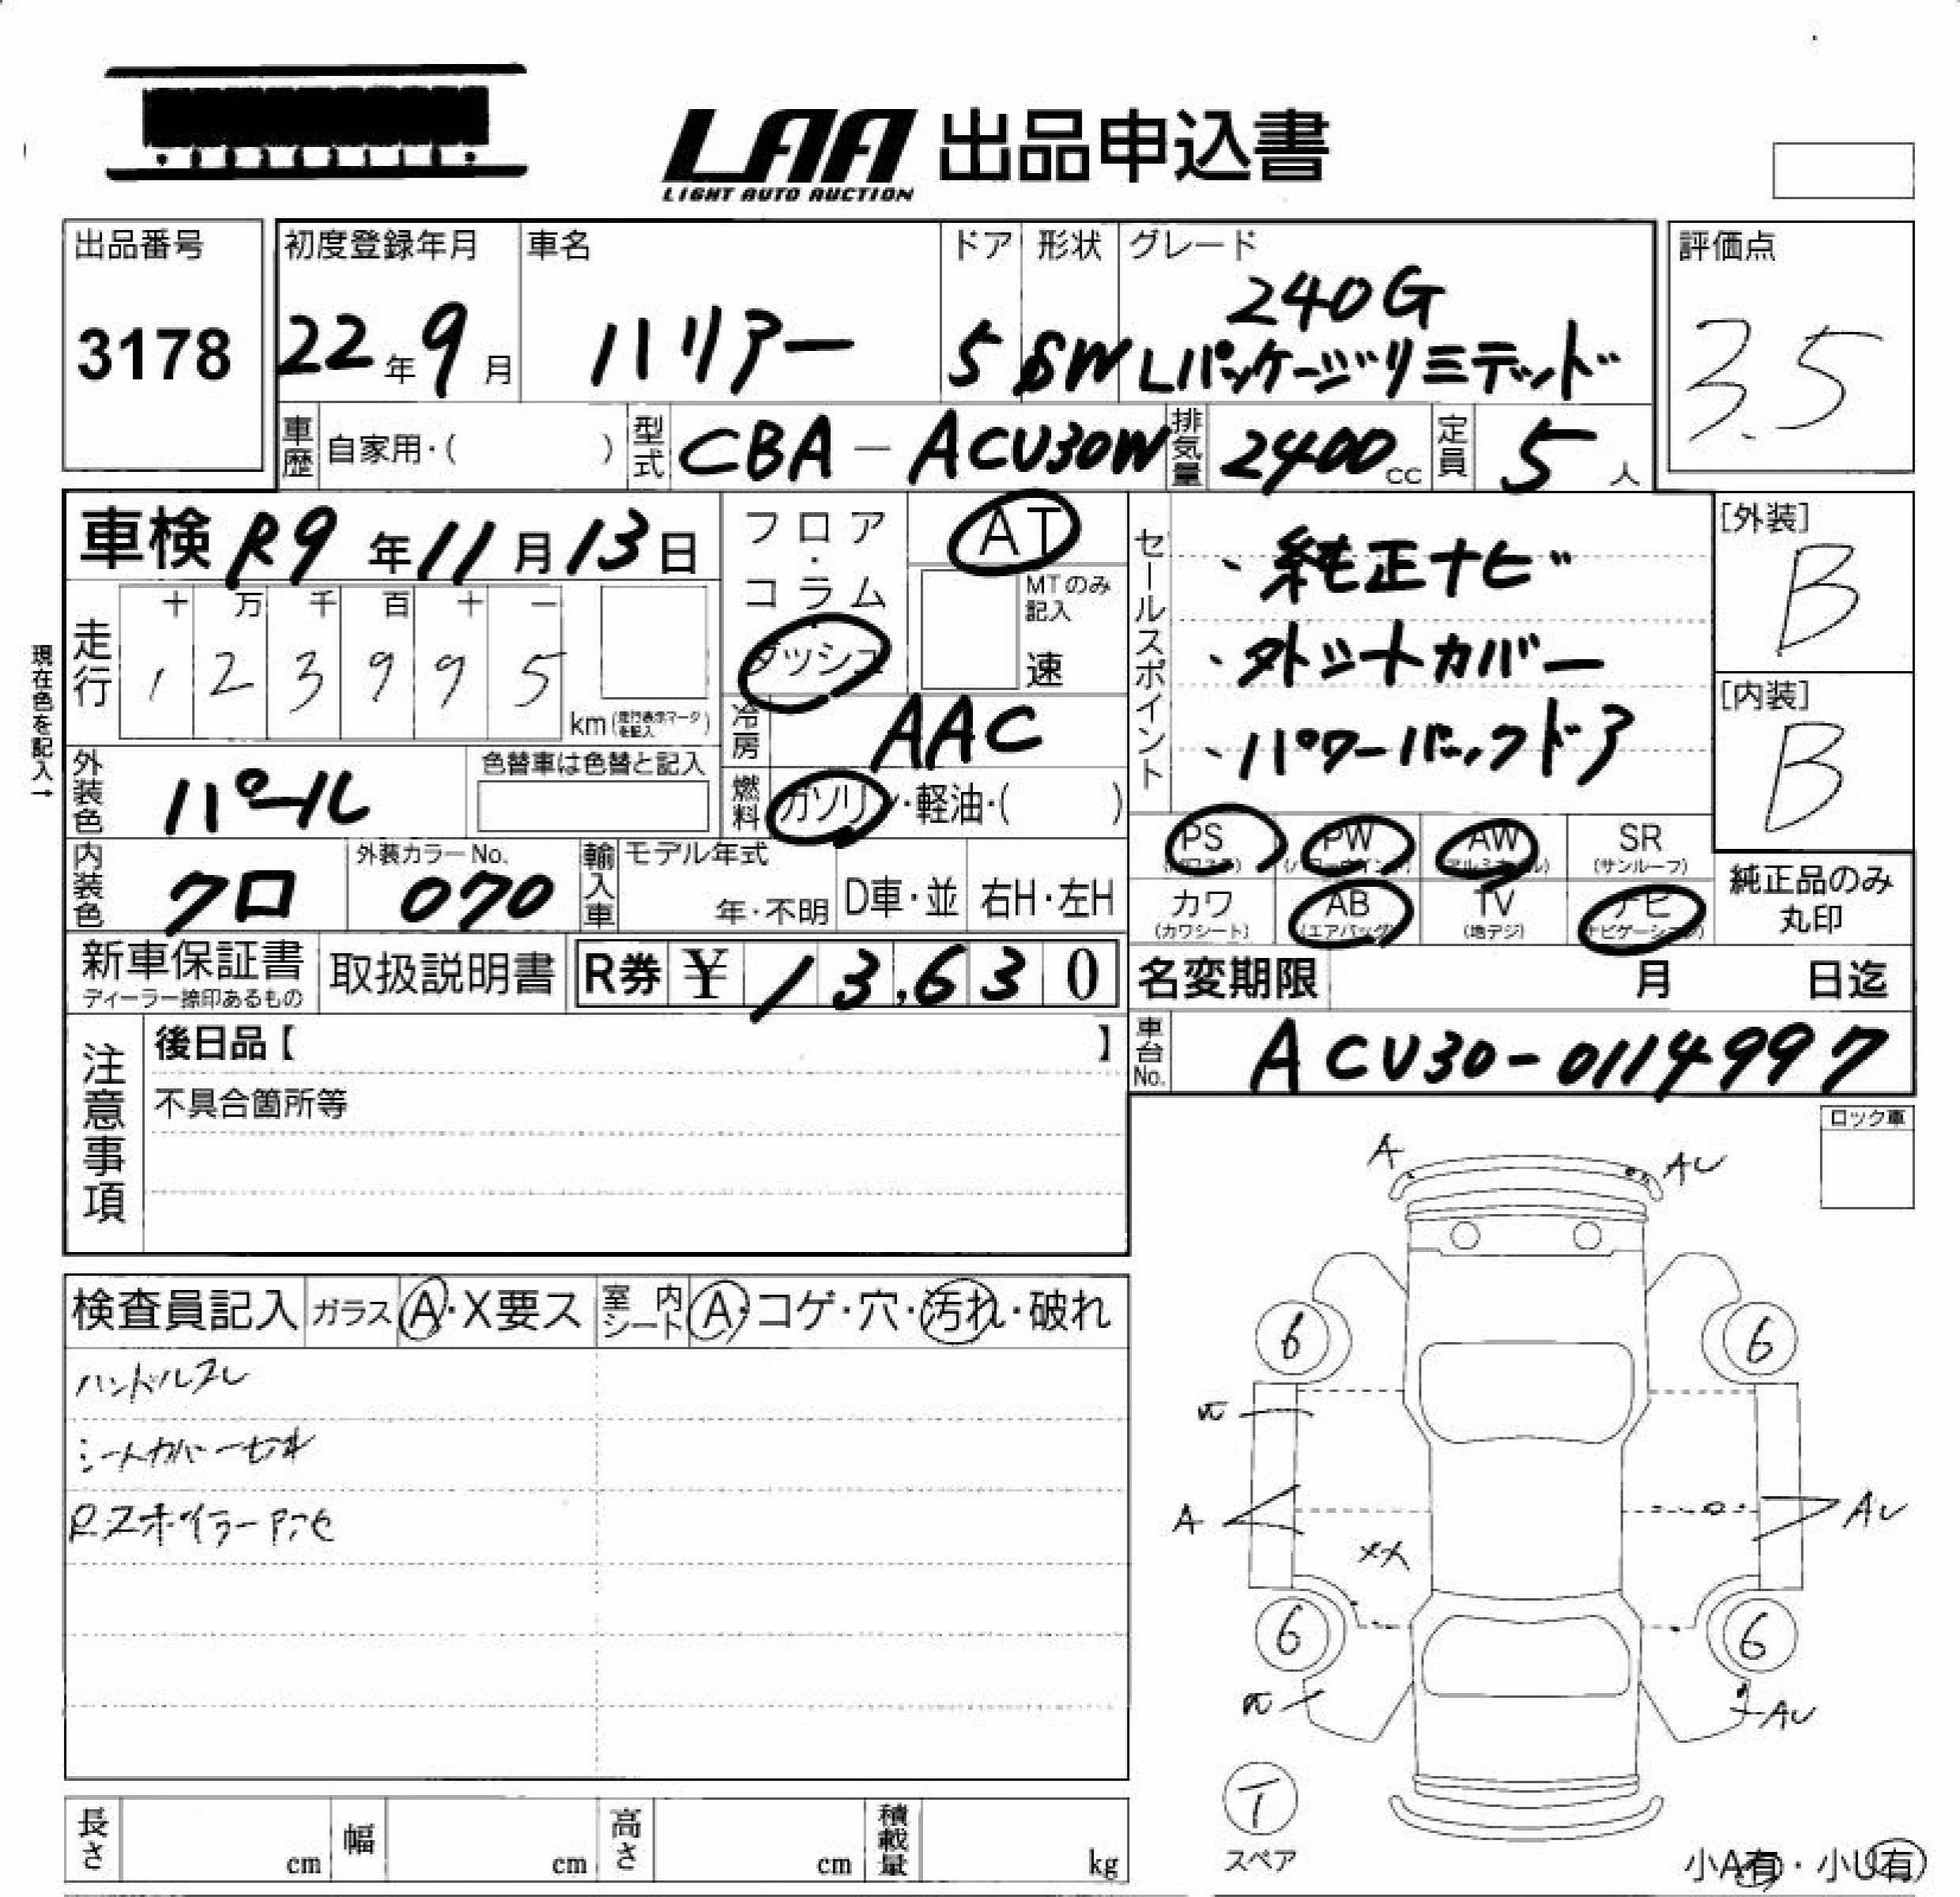 LAA 出品申込書
LIGHT AUTO AUCTION
出品番号
3178
初度登録年月
22年9月
車名
ハリアー
ドア
5
形状
SW
グレード
240G
Lパッケージリミテッド
評価点
3.5
車歴 自家用・( )
型式 CBA-ACU30W
排気量 2400cc
定員 5人
車検 R9年11月13日
フロア・コラム
ダッシュ
AT
MTのみ記入
速
セールスポイント
、純正ナビ
・ハーフシートカバー
、パワーバックドア
[外装]
B
[内装]
B
現在色を記入→
走行
十 万 千 百 十 一
1 2 3 9 9 5
km(走行表示マークを記入)
冷房 AAC
外装色 パール
色替車は色替と記入
燃料 ガソリン・軽油・( )
PS AW PW SR
(サンルーフ)
内装色 クロ
外装カラーNo.
070
輸入車
モデル年式
年・不明
D車・並
右H・左H
カワ AB TV ナビ
(カワシート) (エアバッグ) (地デジ) (ナビゲーション)
純正品のみ丸印
新車保証書
ディーラー捺印あるもの
取扱説明書
R券 ¥ 13,630
名変期限 月 日迄
車台No. ACU30-0114997
注意事項
後日品【 】
不具合箇所等
ロック車
A AU
検査員記入
ガラス A・X要ス
室内シート A・コゲ・穴・汚れ・破れ
ハンドルスレ
シートカバー
Rスポイラー
6 6
A AU
XX
6 6
AU
T
スペア
長さ cm
幅 cm
高さ cm
積載量 kg
小A有・小U有